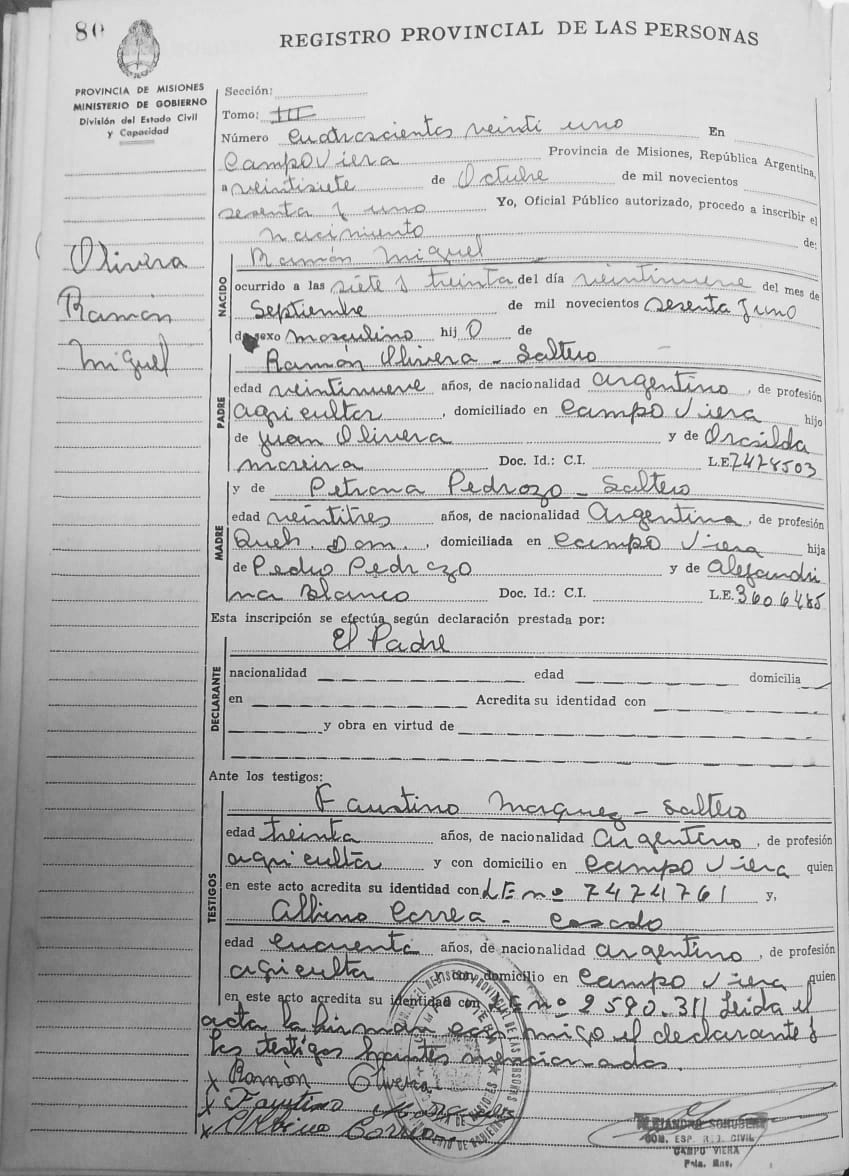 80
REGISTRO PROVINCIAL DE LAS PERSONAS
PROVINCIA DE MISIONES
MINISTERIO DE GOBIERNO
División del Estado Civil
y Capacidad
Olivera
Ramón
Miguel
Sección:
Tomo: III
Número cuatrocientos veinti uno En
Campo Viera Provincia de Misiones, República Argentina,
a veintisiete de Octubre de mil novecientos
sesenta y uno Yo, Oficial Público autorizado, procedo a inscribir el
nacimiento de:
NACIDO
Ramón Miguel
ocurrido a las siete y treinta del día veintinueve del mes de
Septiembre de mil novecientos sesenta y uno
de sexo masculino hijo de
PADRE
Ramón Olivera - Soltero
edad veintinueve años, de nacionalidad argentino, de profesión
agricultor, domiciliado en Campo Viera hijo
de Juan Olivera y de Orcilda
Moreira Doc. Id.: C.I. L.E. 7478503
MADRE
y de Petrona Pedrozo - Soltera
edad veintitres años, de nacionalidad Argentina, de profesión
Queh. Dom., domiciliada en Campo Viera hija
de Pedro Pedrozo y de Alejandri
na Blanco Doc. Id.: C.I. L.E. 3606485
Esta inscripción se efectúa según declaración prestada por:
El Padre
DECLARANTE
nacionalidad edad domicilia
en Acredita su identidad con
y obra en virtud de
Ante los testigos:
TESTIGOS
Faustino Marquez - Soltero
edad treinta años, de nacionalidad argentino, de profesión
agricultor y con domicilio en Campo Viera quien
en este acto acredita su identidad con LE nº 7474761 y,
Albino Correa - casado
edad cincuenta años, de nacionalidad argentino, de profesión
agricultor y con domicilio en Campo Viera quien
en este acto acredita su identidad con LE nº 2590.311 Leida el
acta la firman conmigo el declarante y
los testigos mencionados.
x Ramón Olivera
x Faustino
x Albino Correa
ALEJANDRO SCHUBERT
CAMPO VIERA
Pcia. Mns.